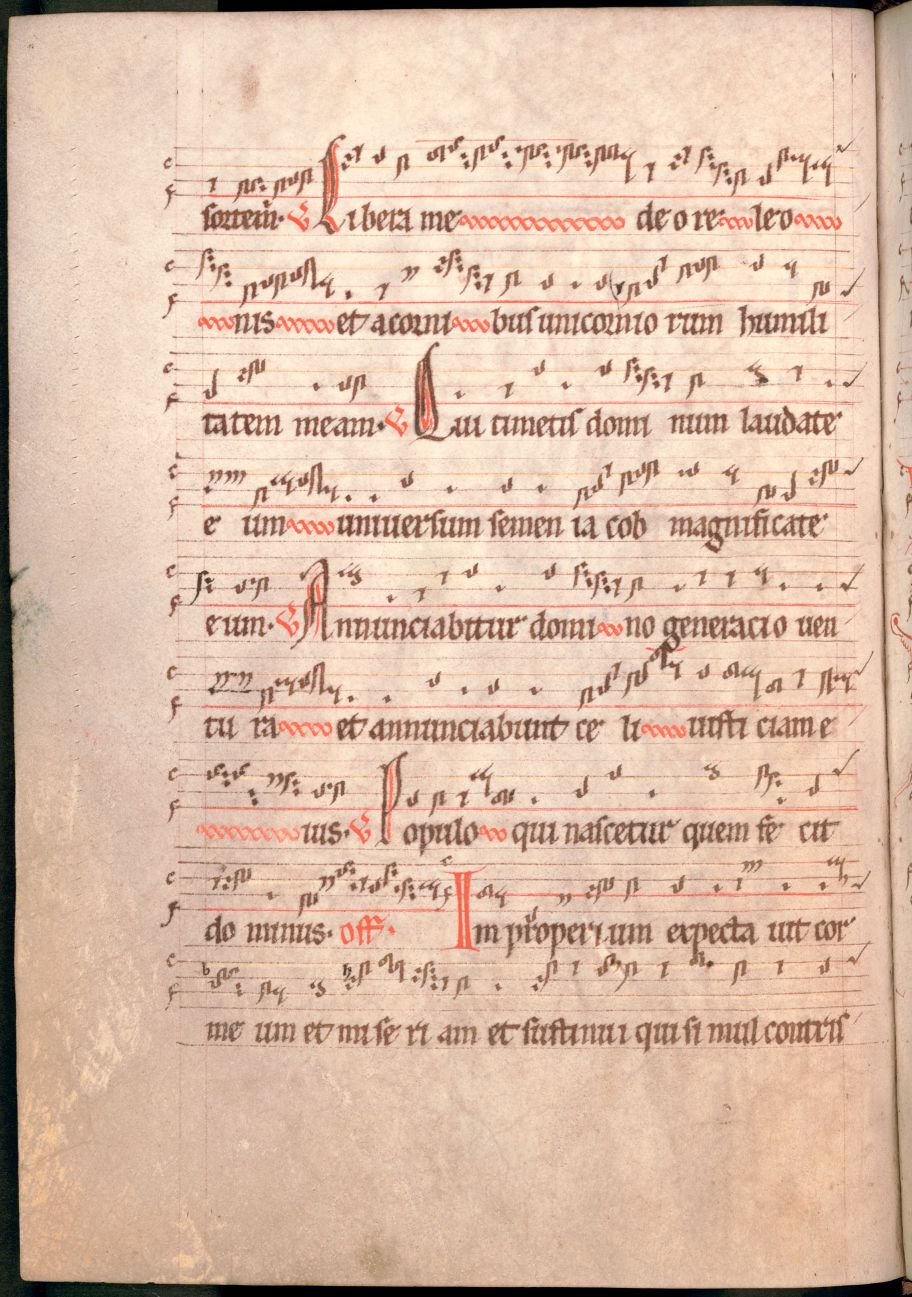 sortem. V Libera me de ore leo
nis et a corni bus unicornio rum humili
tatem meam. V Qui timetis domi num laudate
e um universum semen ia cob magnificate
eum. V Annunciabitur domi no generacio ven
tu ra et annunciabunt ce li iusti ciam e
ius. V Populo qui nascetur quem fe cit
do minus. off. Improperi um expecta uit cor
me um et mi se ri am et sustinu i qui si mul contris